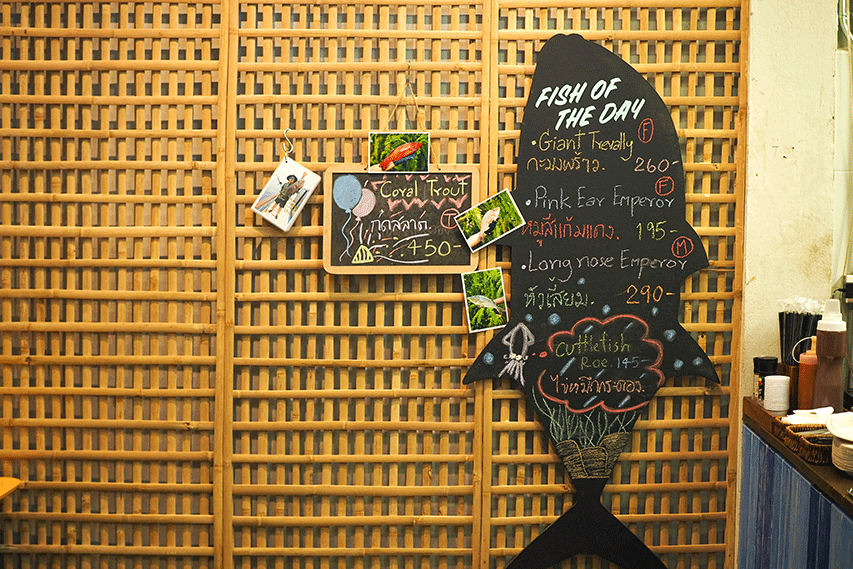 FISH OF
THE DAY
• Giant Trevally Ⓕ
กะมงพร้าว. 260-
Ⓕ
• Pink Ear Emperor
หมูสีแก้มแดง. 195-
Ⓜ
• Long nose Emperor
หัวเสี้ยม. 290-
Cuttlefish
Roe. 145-
ไข่หมึกกระดอง.
Coral Trout
กุดสลาด. Ⓣ
450-